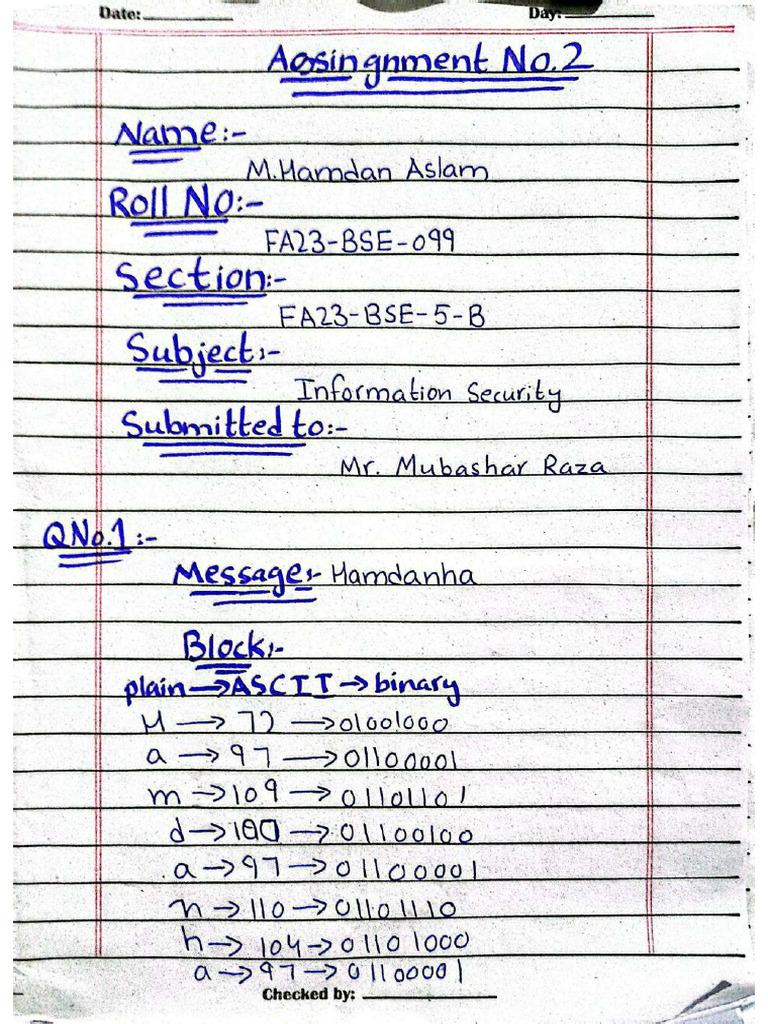 Date: Day:
Assingnment No.2
Name:-
M.Hamdan Aslam
Roll No:-
FA23-BSE-099
Section:-
FA23-BSE-5-B
Subject:-
Information Security
Submitted to:-
Mr. Mubashar Raza
QNo.1:-
Message:- Hamdanha
Block:-
plain→ASCII→binary
H → 72 →01001000
a → 97 →01100001
m →109 → 01101101
d →100 → 01100100
a →97→01100001
n →110→01101110
h → 104→01101000
a →97→01100001
Checked by: